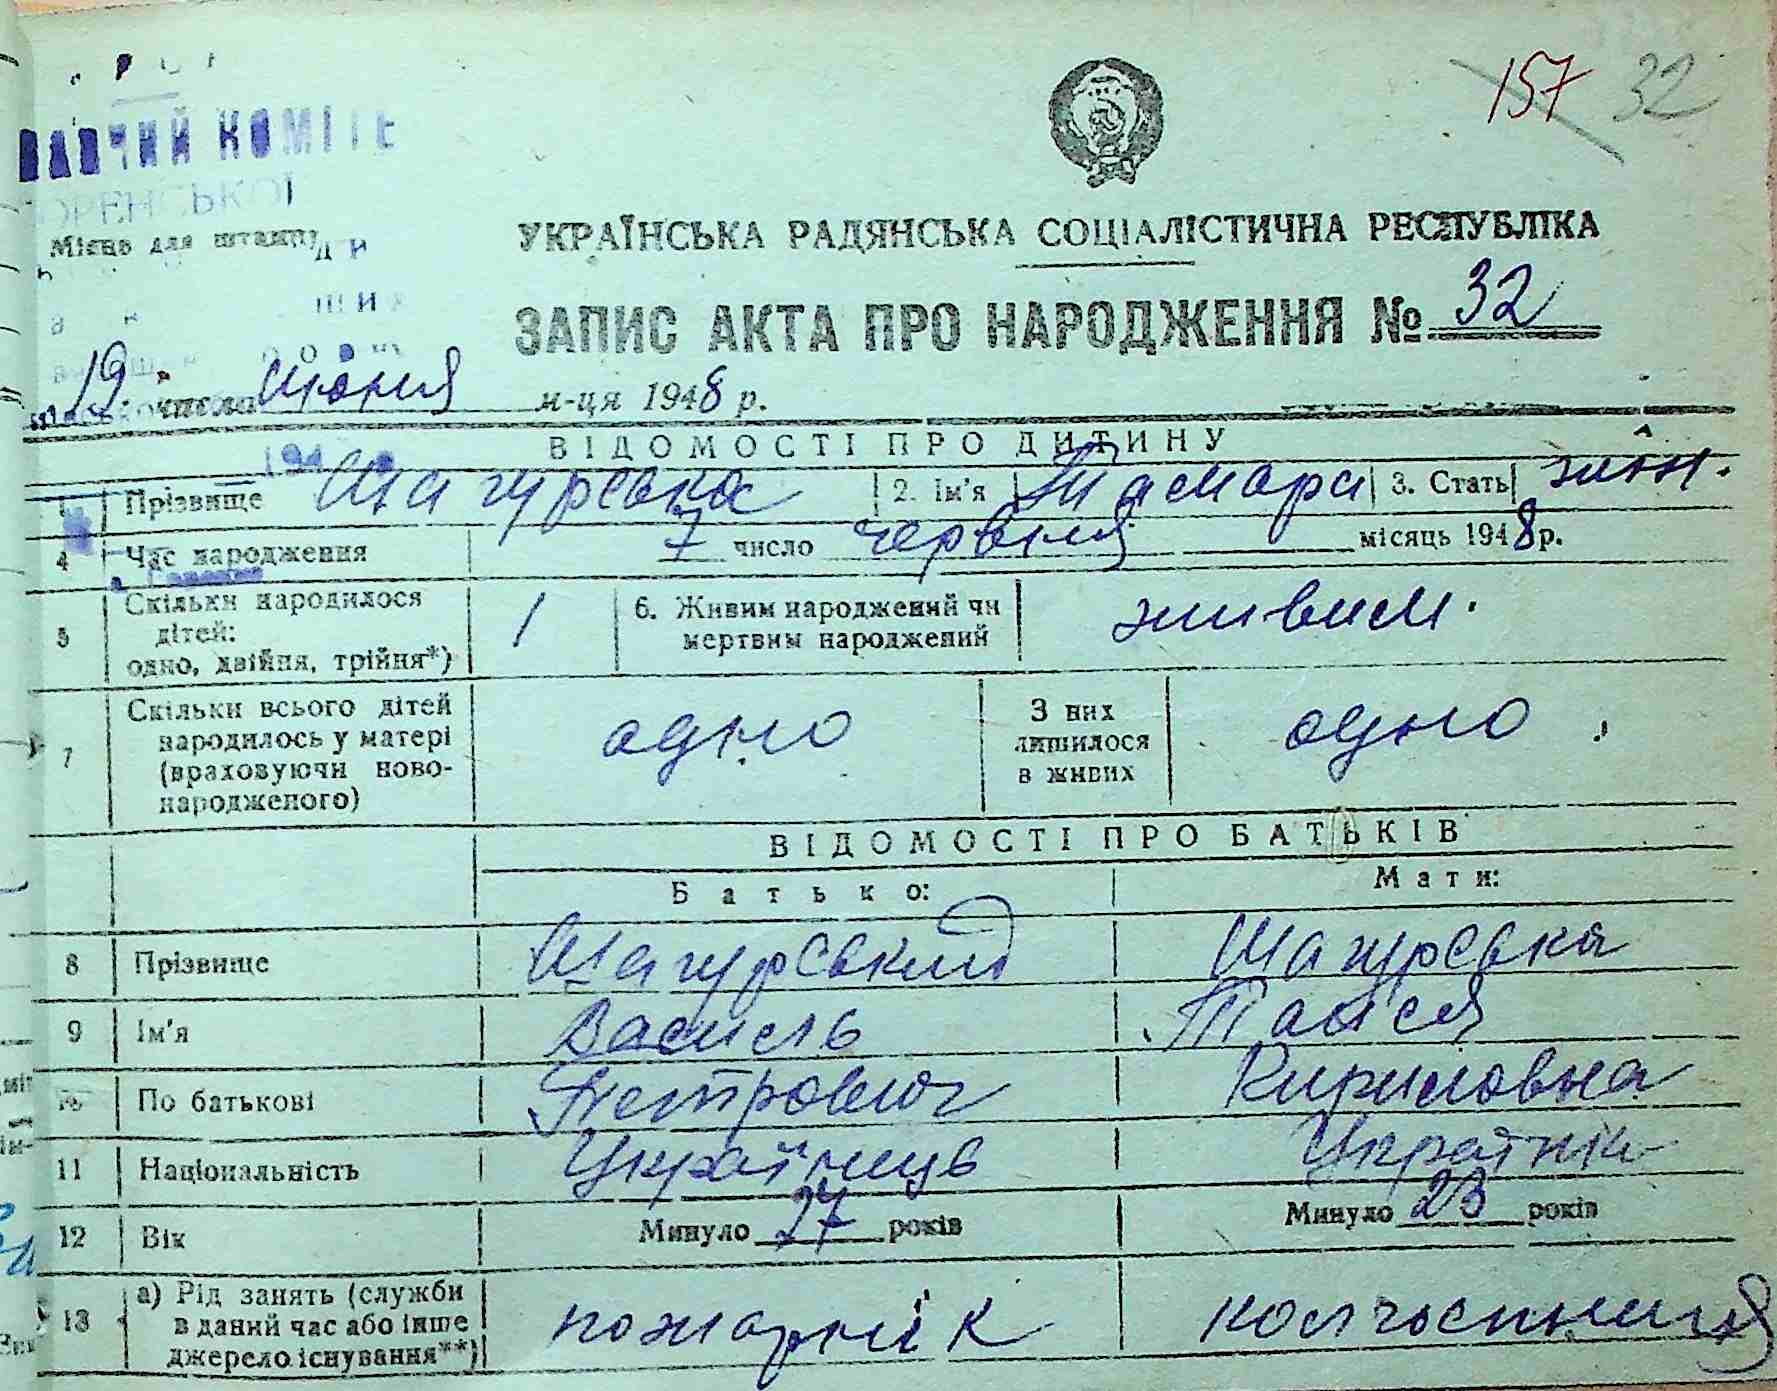 157 32
ВАВЧИЙ КОМІТЕ
ОРЕНСЬКОЇ
Місце для штампу
УКРАЇНСЬКА РАДЯНСЬКА СОЦІАЛІСТИЧНА РЕСПУБЛІКА
ЗАПИС АКТА ПРО НАРОДЖЕННЯ № 32
19 числа июня м-ця 1948 р.
ВІДОМОСТІ ПРО ДИТИНУ
1 Прізвище Шагурська 2. Ім'я Тамара 3. Стать жін.
4 Час народження 7 число червня місяць 1948 р.
5 Скільки народилося дітей: одно, двійня, трійня*) 1 6. Живим народжений чи мертвим народжений живим.
7 Скільки всього дітей народилось у матері (враховуючи новонародженого) одно З них лишилося в живих одно
ВІДОМОСТІ ПРО БАТЬКІВ
Батько: Мати:
8 Прізвище Шагурський Шагурська
9 Ім'я Василь Таися
10 По батькові Петрович Кириловна
11 Національність Українець Українк
12 Вік Минуло 27 років Минуло 23 років
13 а) Рід занять (служби в даний час або інше джерело існування**) пожарнік колгоспниця